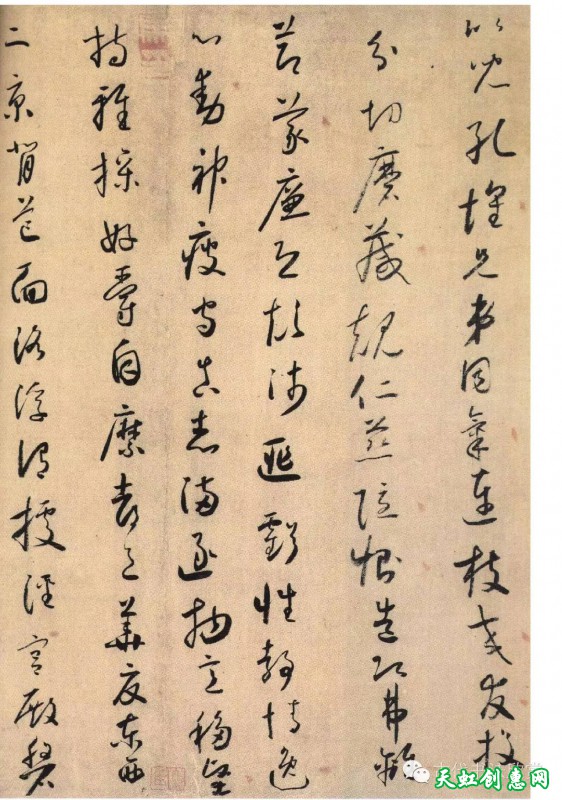 比兒孔懷兄弟同氣連枝交友投
分切磨箴規仁慈隱惻造次弗離
節義廉退顛沛匪虧性靜情逸
心動神疲守真志滿逐物意移堅
持雅操好爵自縻都邑華夏東西
二京背芒面洛浮渭據涇宮殿盤
天虹创惠网